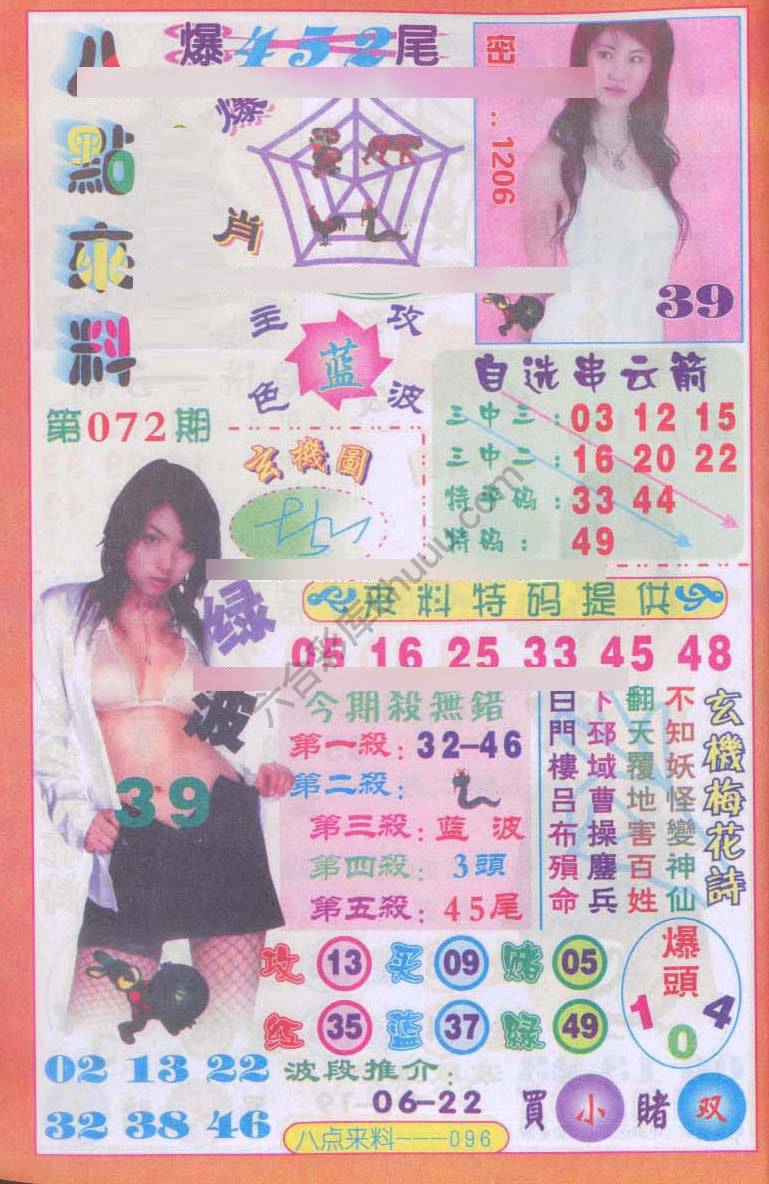 八點來料
爆452尾
爆肖
密
1206
39
主攻
色波
蓝
第072期
玄機圖
自选串云箭
三中三：03 12 15
三中二：16 20 22
特平码：33 44
特码：49
来料特码提供
05 16 25 33 45 48
绿波
39
今期殺無錯
第一殺：32-46
第二殺：
第三殺：蓝波
第四殺：3頭
第五殺：45尾
玄機梅花詩
不知妖怪變神仙
翻天覆地害百姓
下邳城曹操鏖兵
白門樓呂布殞命
攻 13 买 09 赌 05
红 35 蓝 37 绿 49
爆頭
1 0 4
02 13 22
32 38 46
波段推介：
06-22
買小賭双
八点来料---096
六合彩库
huuu.com